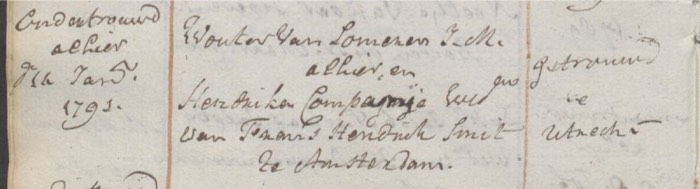 Ondertrouwd
alhier
Jan:
1791.
Wouter Van Lomenen J:M:
alhier, en
Hendrika Compagnije Wed
van Frans Hendrick Smit
te Amsterdam.
getrouwd
te
Utrecht